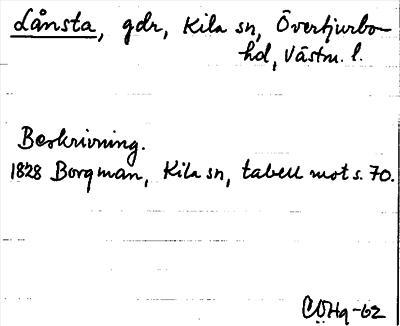 Lånsta, gdr, Kila sn, Övertjurbo
hd, Västm. l.
Beskrivning.
1828 Borgman, Kila sn, tabell mot s. 70.
CÖHg-62